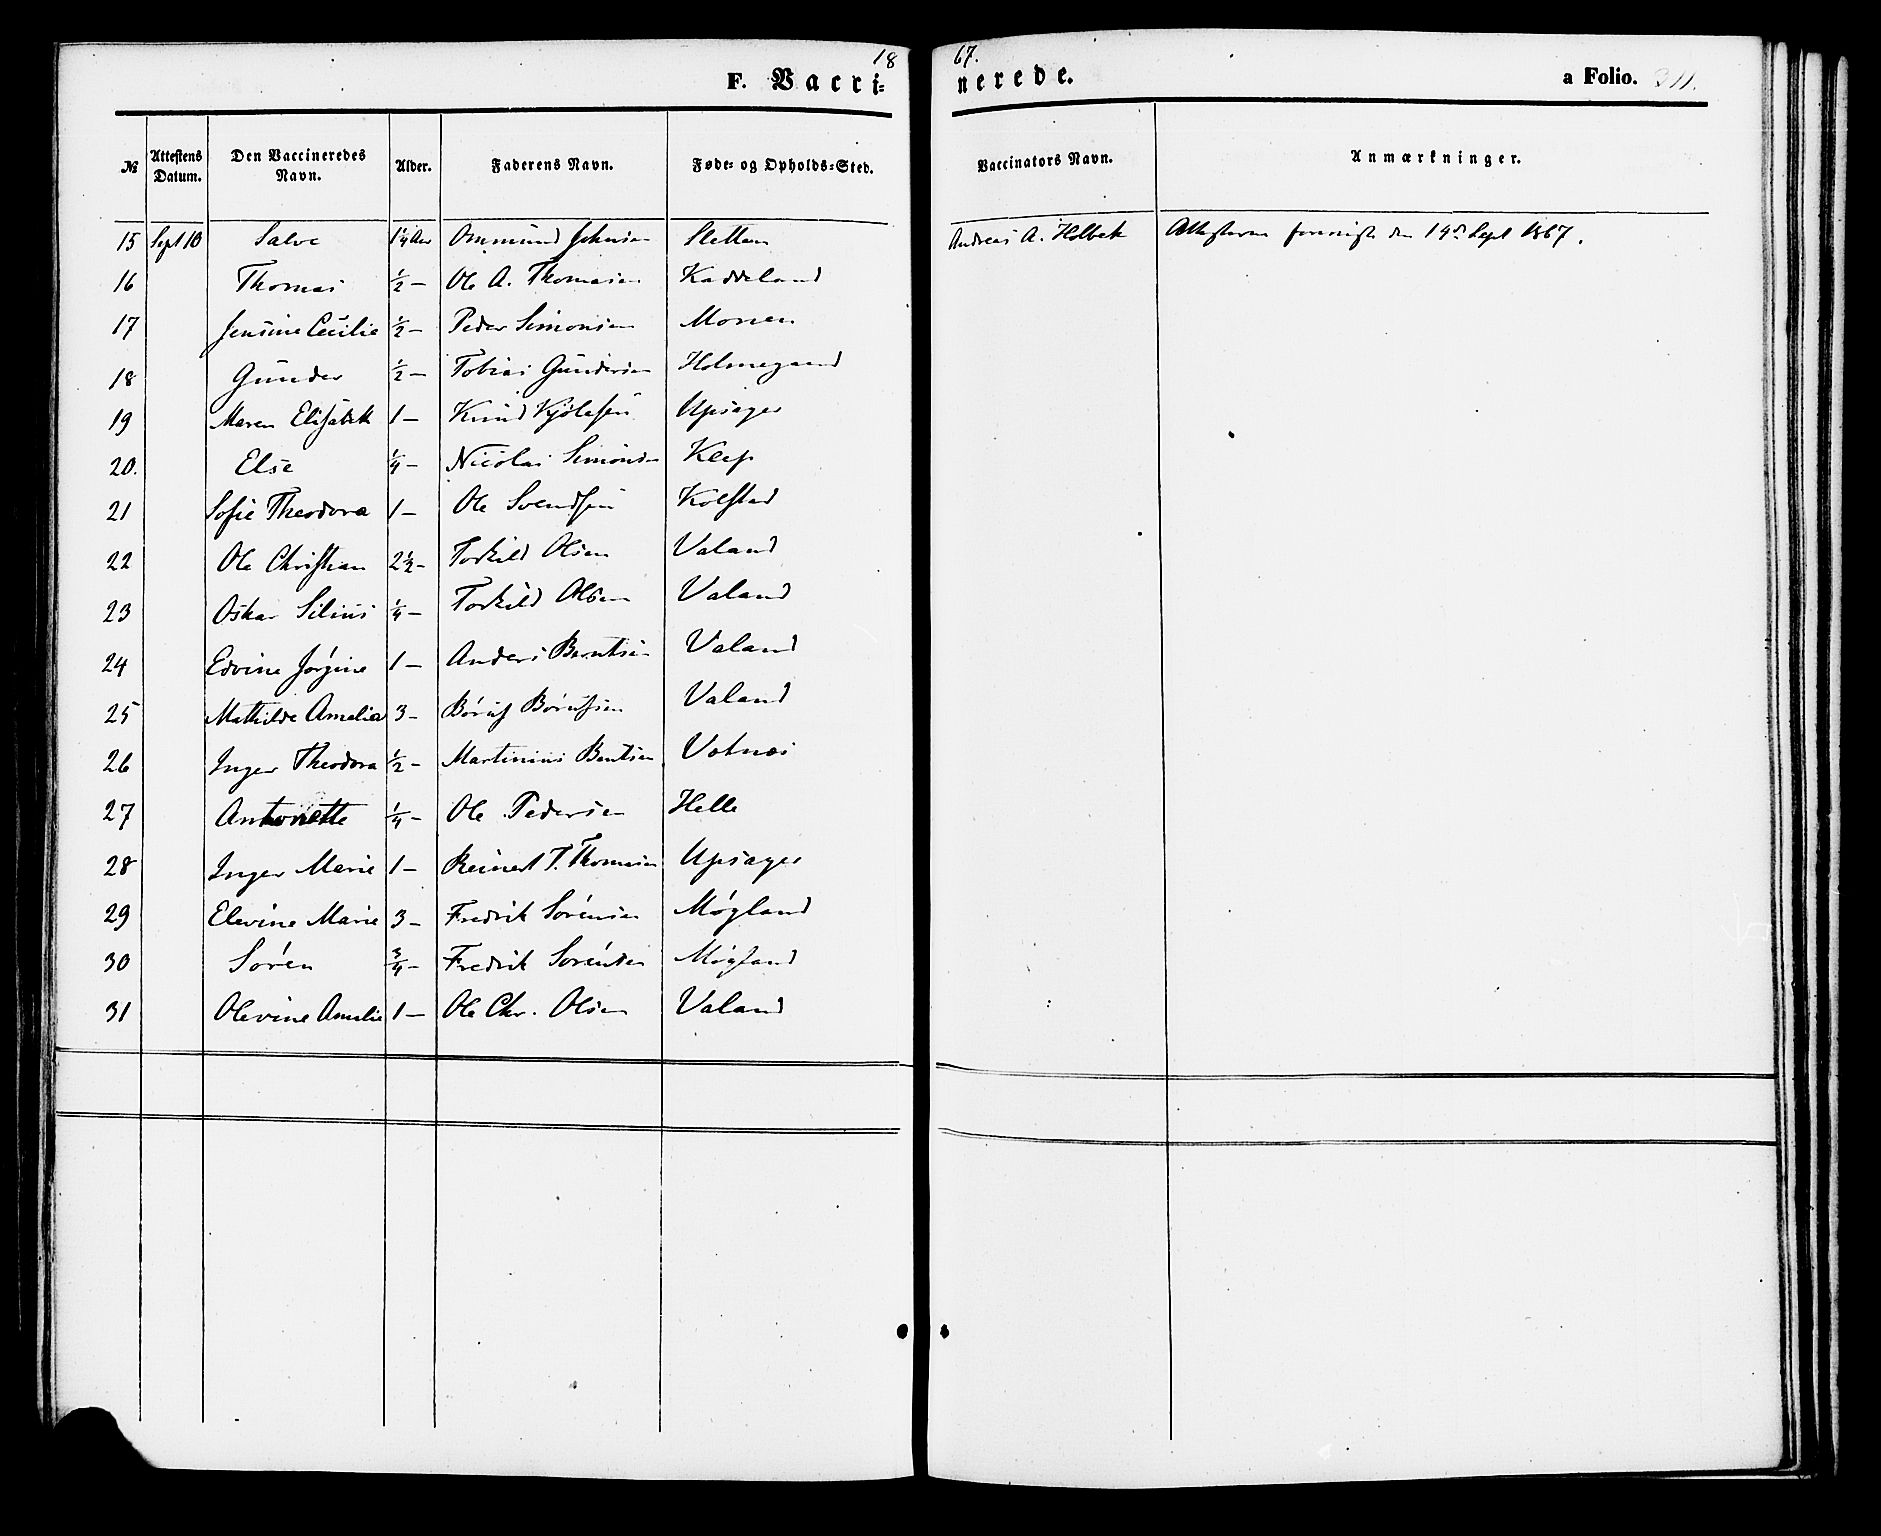 1867.
F. Vaccinerede. a Folio. 311.
№ Attestens Datum. Den Vaccineredes Navn. Alder. Faderens Navn. Føde- og Opholds-Sted. Vaccinators Navn. Anmærkninger.
15 Sept 10 Salve 1¼ Aar Ommund Johnsen Sletten Andreas A. Holbek Attesterne den 14de Sept 1867.
16 Thomas ½ — Ole A. Thomasen Kaddeland
17 Jensine Cecilie ½ — Peder Simonsen Monen
18 Gunder ½ — Tobias Gundersen Holmegaard
19 Maren Elisabeth 1 — Knud Upsager
20. Else ¼ — Nicolai Simonsen Klep
21 Sofie Theodora 1 — Ole Svendsen Kolstad
22 Ole Christian 2½ — Torkild Olsen Valand
23 Oskar Silius ¼ — Torkild Olsen Valand
24 Edvine Jørgine 1 — Anders Berntsen Valand
25 Mathilde Amalia 3 — Børuf Børufsen Valand
26 Inger Theodora ½ — Martinius Bentsen Votnæs
27 Antonette ¼ — Ole Pedersen Helle
28 Inger Marie 1 — Reinert T. Thomasen Upsager
29 Elevine Marie 3 — Fredrik Sørensen Møgland
30 Søren ¾ — Fredrik Sørensen Møgland
31 Olevine Amalie 1 — Ole Chr. Olsen Valand